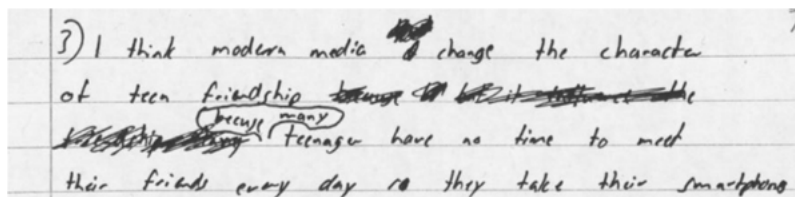 3) I think modern media change the character
of teen friendship
becuse many
teenager have no time to meet
their friends every day so they take their smartphone